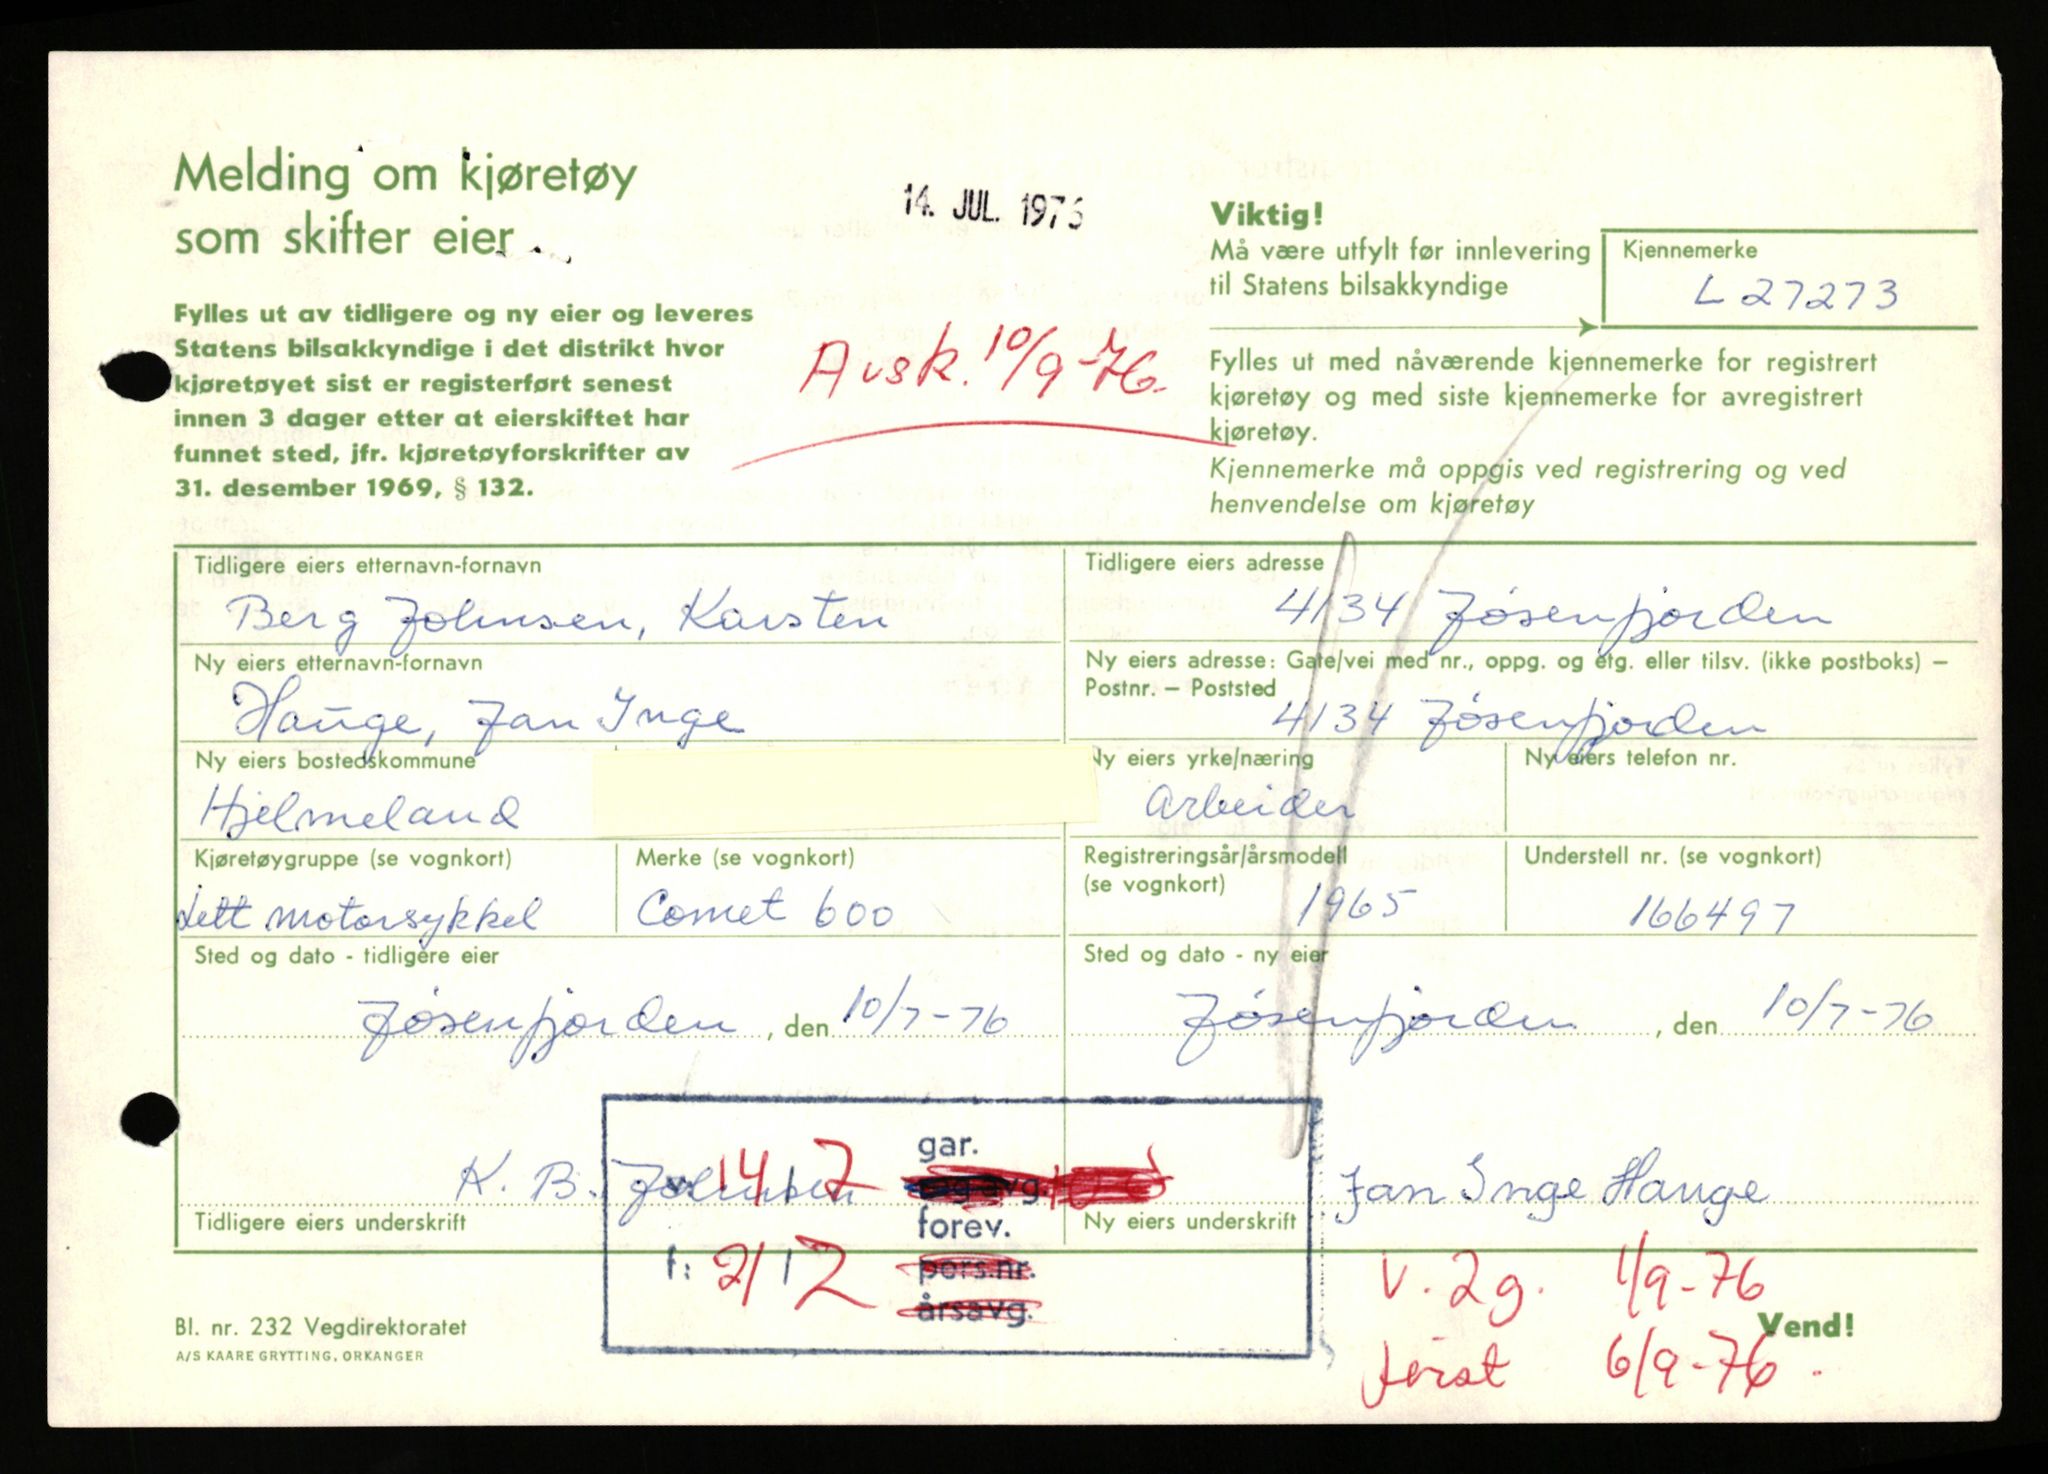 Melding om kjøretøy
som skifter eier
14. JUL. 1976
Viktig!
Må være utfylt før innlevering
til Statens bilsakkyndige
Kjennemerke
L 27273
Fylles ut av tidligere og ny eier og leveres
Statens bilsakkyndige i det distrikt hvor
kjøretøyet sist er registerført senest
innen 3 dager etter at eierskiftet har
funnet sted, jfr. kjøretøyforskrifter av
31. desember 1969, § 132.
Avsk. 10/9-76.
Fylles ut med nåværende kjennemerke for registrert
kjøretøy og med siste kjennemerke for avregistrert
kjøretøy.
Kjennemerke må oppgis ved registrering og ved
henvendelse om kjøretøy
Tidligere eiers etternavn-fornavn
Berg Johnsen, Karsten
Tidligere eiers adresse
4134 Jøsenfjorden
Ny eiers etternavn-fornavn
Hauge, Jan Inge
Ny eiers adresse: Gate/vei med nr., oppg. og etg. eller tilsv. (ikke postboks) –
Postnr. – Poststed
4134 Jøsenfjorden
Ny eiers bostedskommune
Hjelmeland
Ny eiers yrke/næring
Arbeider
Ny eiers telefon nr.
Kjøretøygruppe (se vognkort)
Lett motorsykkel
Merke (se vognkort)
Comet 600
Registreringsår/årsmodell
(se vognkort)
1965
Understell nr. (se vognkort)
166497
Sted og dato - tidligere eier
Jøsenfjorden, den 10/7-76
Sted og dato - ny eier
Jøsenfjorden, den 10/7-76
K. B. Johnsen
Tidligere eiers underskrift
Jan Inge Hauge
Ny eiers underskrift
gar.
14 7
forev.
f: 21/2
pers.nr.
årsavg.
V. 2g. 1/9-76
først 6/9-76.
Bl. nr. 232 Vegdirektoratet
A/S KAARE GRYTTING, ORKANGER
Vend!